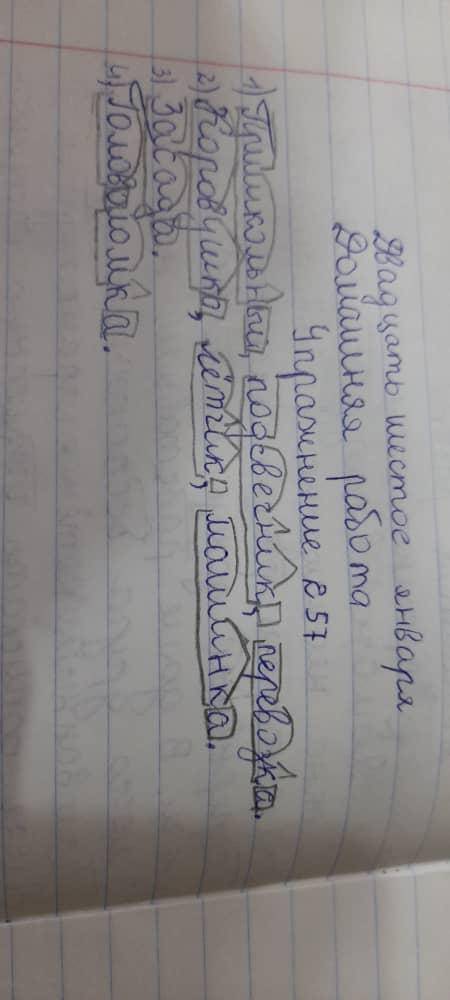 Двадцать шестое января
Домашняя работа
Упражнение 257
1) Пришкольный, подсвечник, перевозка.
2) Коровушка, лётчик, машинка.
3) Засада.
4) Головоломка.